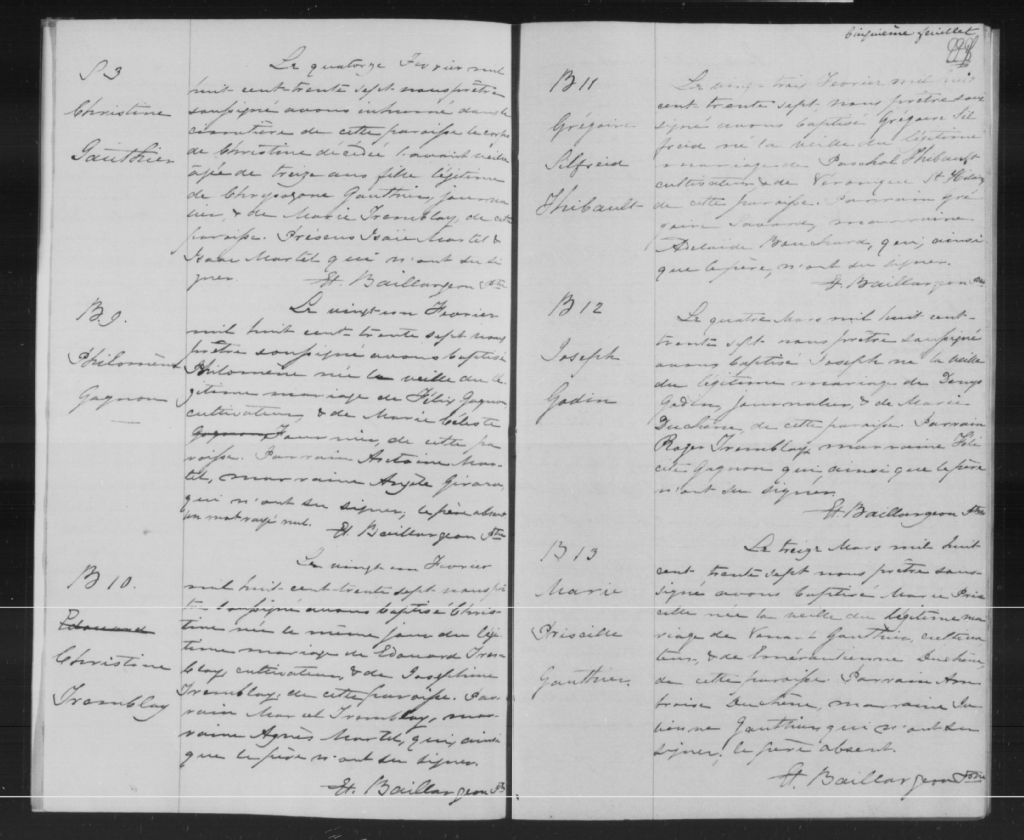 S 3
Christine
Gauthier
Le quatorze Fevrier mil
huit cent trente sept nous prêtre
soussigné avons inhumé dans le
cimetière de cette paroisse le corps
de Christine décédée l'avant veille
agée de treize ans fille légitime
de Chrysozone Gauthier, journa
lier, & de Marie Tremblay, de cette
paroisse. Présens Isaïe Martel &
Isaac Martel qui n'ont su si
gner. H. Baillargeon Ptre
B 9.
Philomène
Gagnon
Le vingt un Fevrier
mil huit cent trente sept nous
prêtre soussigné avons baptisé
Philomène née la veille du lé
gitime mariage de Félix Gagnon,
cultivateur, & de Marie Céleste
Gagnon Fournier, de cette pa
roisse. Parrain Antoine Mar
tel, marraine Angèle Girard,
qui n'ont su signer, le père absent
Un mot rayé nul. H. Baillargeon Ptre
B 10.
Edouard
Christine
Tremblay
Le vingt un Fevrier
mil huit cent trente sept nous prê
tre soussigné avons baptisé Chris
tine née le même jour du légi
time mariage de Edouard Trem
blay, cultivateur, & de Joséphine
Tremblay, de cette paroisse. Par
rain Marcel Tremblay, mar
raine Agnès Martel, qui, ainsi
que le père n'ont su signer.
H. Baillargeon Ptre
Cinquième feuillet
B 11
Grégoire
Silfreid
Thibault
Le vingt trois Fevrier mil huit
cent trente sept nous prêtre sous
signé avons baptisé Grégoire Sil
freid né la veille du légitime
mariage de Paschal Thibault
cultivateur & de Véronique St Hilaire
de cette paroisse. Parrain Gré
goire Savard, marraine
Adelaïde Bouchard, qui, ainsi
que le père, n'ont su signer.
H. Baillargeon Ptre
B 12
Joseph
Godin
Le quatre Mars mil huit cent
trente sept nous prêtre soussigné
avons baptisé Joseph né la veille
du légitime mariage de Denys
Godin, journalier, & de Marie
Duchêne, de cette paroisse. Parrain
Roger Tremblay, marraine Féli
cité Gagnon qui, ainsi que le père
n'ont su signer.
H. Baillargeon Ptre
B 13
Marie
Priscille
Gauthier.
Le treize Mars mil huit
cent trente sept nous prêtre sous
signé avons baptisé Marie Pris
cille née la veille du légitime ma
riage de Gauthier, cultiva
teur, & de Emérentienne Duchêne,
de cette paroisse. Parrain Am
broise Duchêne, marraine Ju
lienne Gauthier, qui n'ont su
signer, le père absent.
H. Baillargeon Ptre